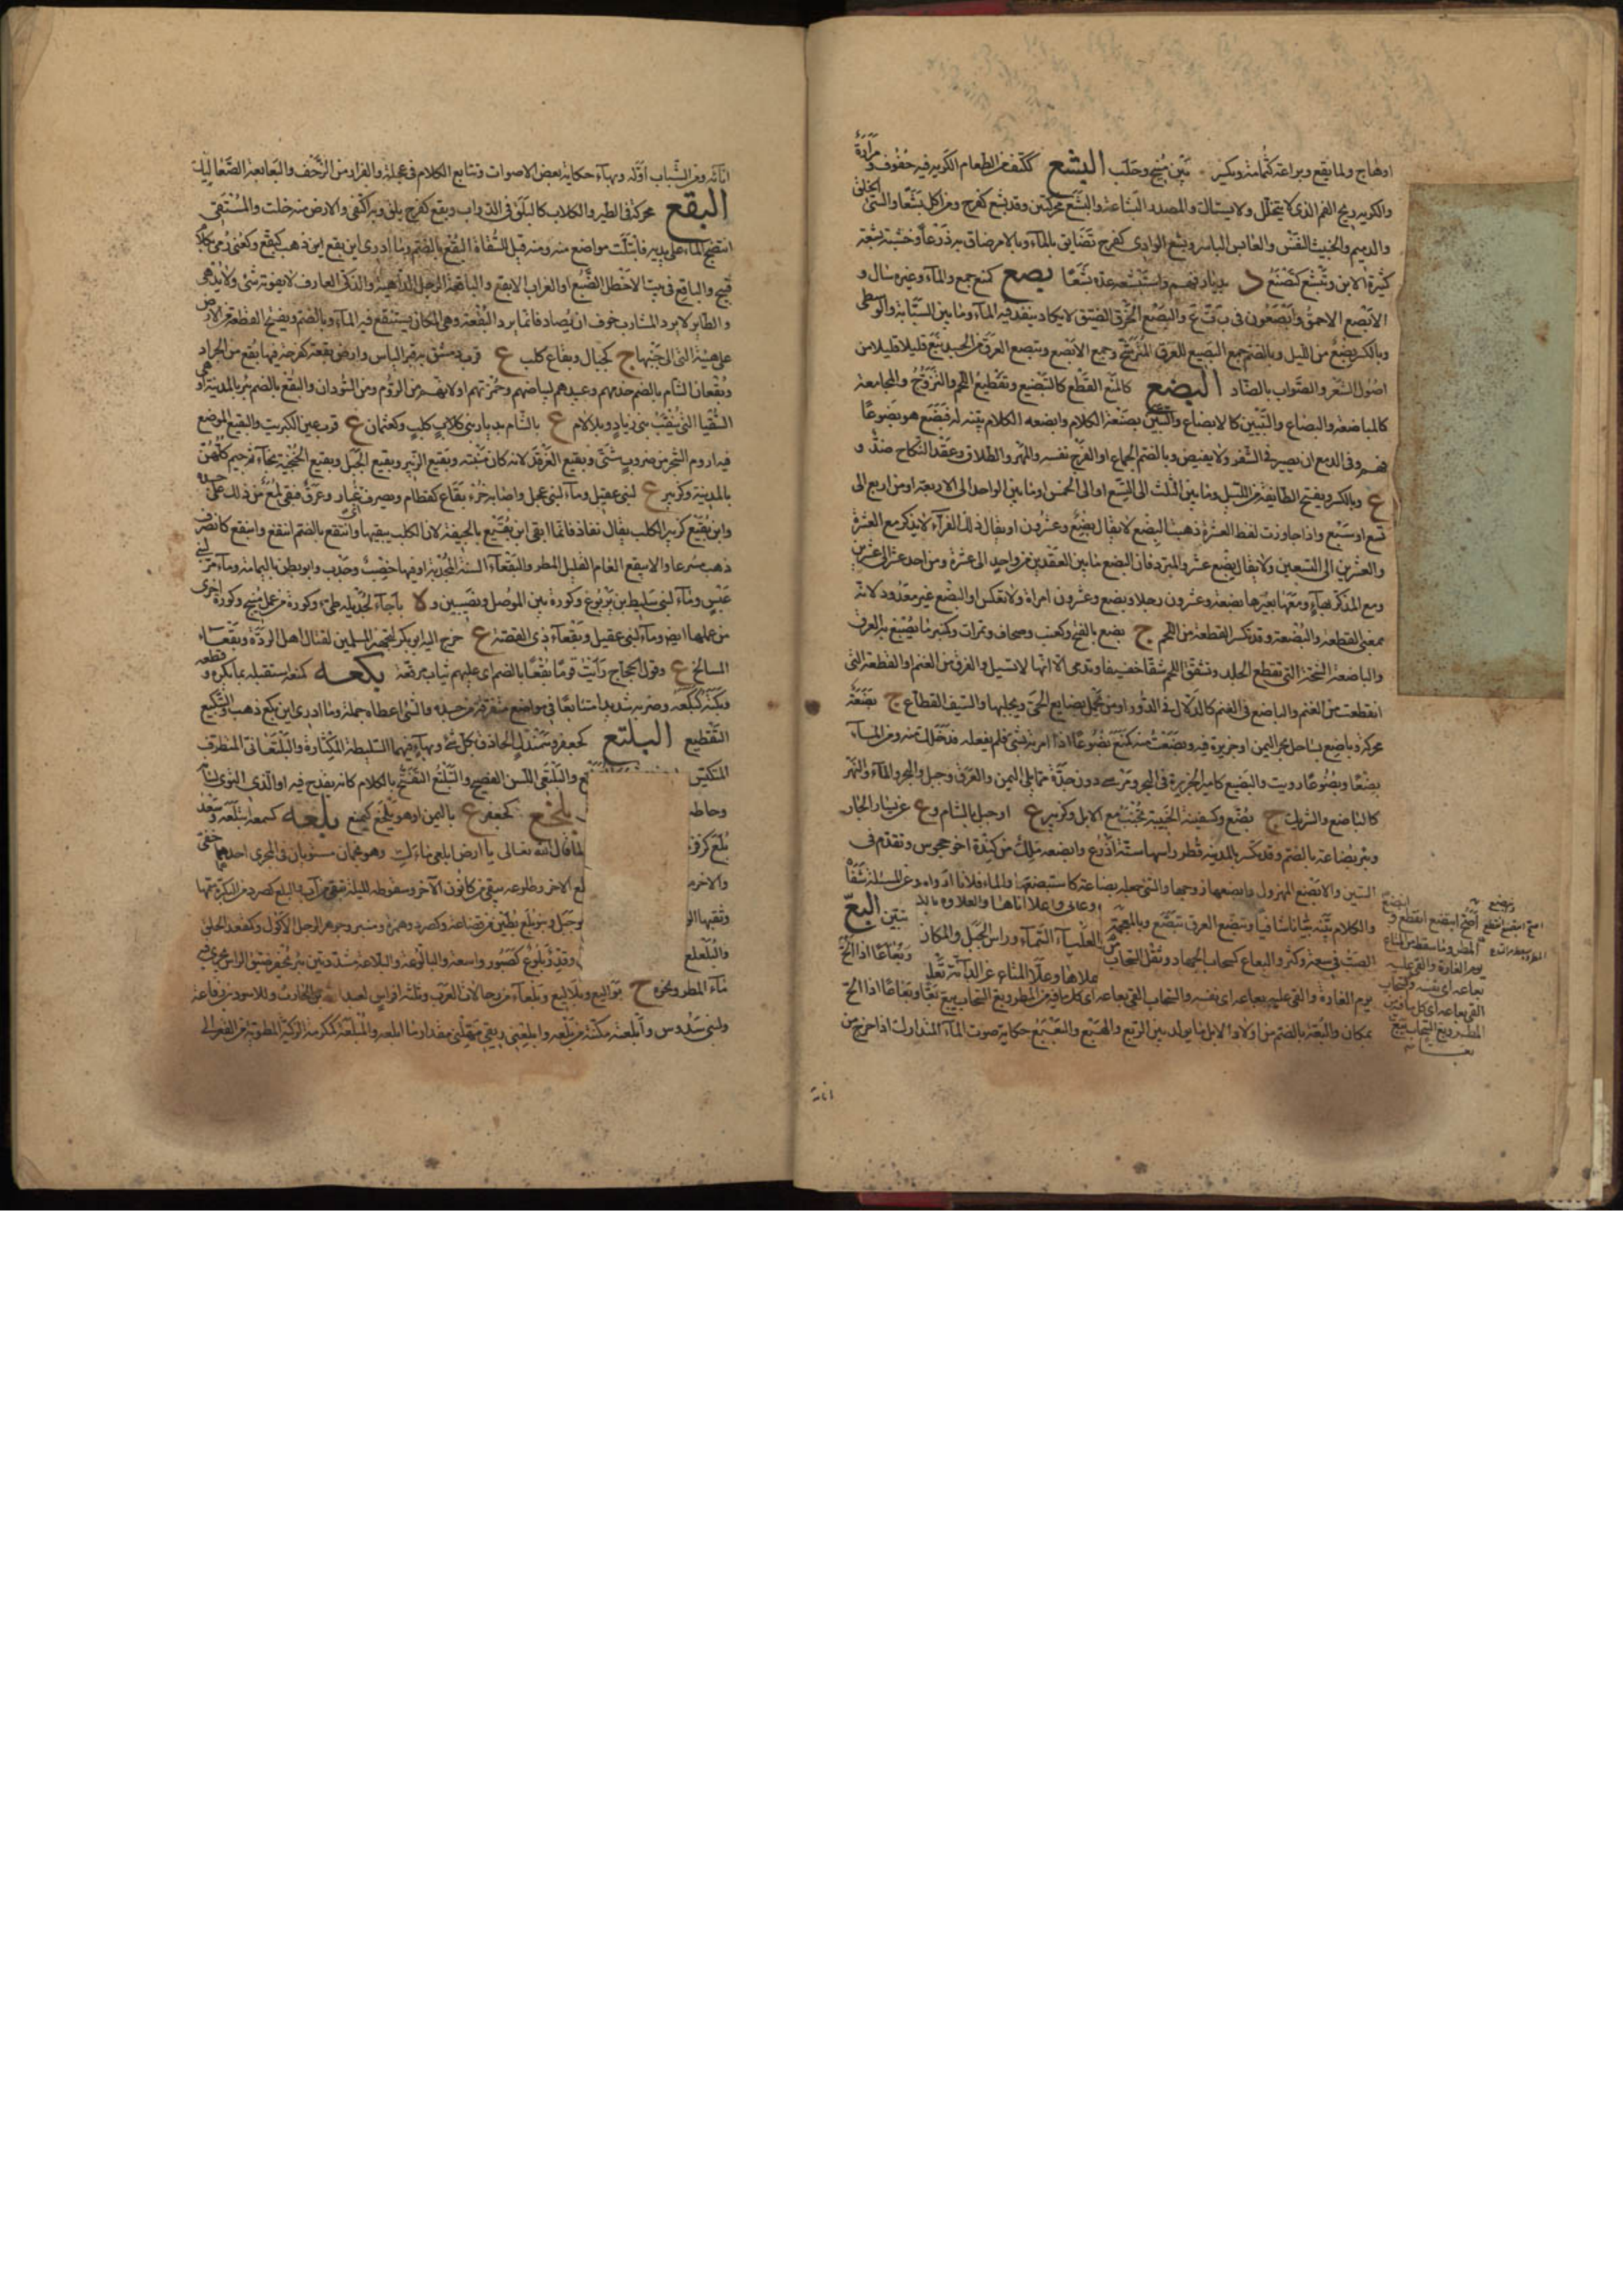 اوهاج ولما يقع وبراعة كثمامة وبكسر بين منبج وحلب البشع ككتف من الطعام الكريه فيه حفوف ومرارة
والكريه ريح الفم الذي لا يتخلل ولا يستاك والمصدر البشاعة والبشع محركتين وقد بشع كفرح ومن اكل بشعا والسيئ الخلق
والدميم والخبيث النفس والعابس الباسر وبشع الوادي كفرح تضايق بالماء وبالامر ضاق به ذرعا وخشبة بشعة
كثيرة الابن وتبشع كتصنع د بديار فهم واستبشعه عده بشعا بصع كمنع جمع والماء وغيره سال و
الابصع الاحمق وابصعون في ب ت ع والبصع الخرق الضيق لا يكاد ينفذ فيه الماء وما بين السبابة والوسطى
وبالكسر بضع من الليل وبالضم جمع البصيع للعرق المترشح وجمع الابصع وتبصع العرق من الجسد نبع قليلا قليلا من
اصول الشعر والصواب بالضاد البضع كالمنع القطع كالتبضيع وتقطيع اللحم والتزوج والمجامعة
كالمباضعة والبضاع والتبيين كالابضاع والتبين بضعته الكلام وابضعه الكلام بينه له فبضع هو بضوعا
فهم وفي الدمع ان يصير في الشفر ولا يفيض وبالضم الجماع او الفرج نفسه والمهر والطلاق وعقد النكاح ضد و
ع وبالكسر ويفتح الطائفة من الليل وما بين الثلث الى التسع او الى الخمس او ما بين الواحد الى الاربعة او من اربع الى
تسع او سبع واذا جاوزت لفظ العشرة ذهب البضع لا يقال بضع وعشرون او يقال ذلك الفراء لا يذكر مع العشرة
والعشرين الى التسعين ولا يقال بضع عشر والمبرد فان البضع ما بين العقدين من واحد الى عشرة ومن احد عشر الى عشرين
ومع المذكر بهاء ومعها بغيرها بضعة وعشرون رجلا وبضع وعشرون امراة ولا تعكس او البضع غير معدود لانه
بمعنى القطعة والبضعة وقد تكسر القطعة من اللحم ج بضع بالفتح وكعنب وصحاف وتمرات وكمنبر ما يبضع به العرق
والباضعة الشجة التي تقطع الجلد وتشق اللحم شقا خفيفا وتدمي الا انها لا تسيل والفرق من الغنم او القطعة التي
انقطعت من الغنم والباضع في الغنم كالدلال في الدور او من يحمل بضايع الحي ويجلبها والسيف القطاع ج بضعة
محركة وباضع بساحل بحر اليمن او جزيرة فيه وبضعت منه كمنع بضوعا اذا امرته بشيء فلم يفعله فدخلك منه ومن الماء
بضعا وبضوعا رويت والبضيع كامير الجزيرة في البحر ومرسى دون جدة مما يلي اليمن والعرق وجبل والبحر والماء والنمر
كالباضع والشريك ج بضع وكسفينة الجنيبة تجنب مع الابل وكزبير ع او جبل بالشام وع عن يسار الجار
وبئر بضاعة بالضم وقد تكسر بالمدينة قطر راسها ستة اذرع وابضعة ملك من كندة اخو مخوس وتقدم في
السين والابضع المهزول وابضعها زوجها والشيء جعله بضاعة كاستبضعه والماء فلانا ارواه وعن المسئلة شفاه
والكلام بينه بيانا شافيا وتبضع العرق تبصع وبالمعجمة
تبين البع
الصب في سعة وكثرة والبعاع كسحاب الجهاز وثقل السحاب من
العلياء السماء وراس الجبل والمكان
وبعاعا اذا الح
يوم الغارة والقى عليه بعاعه اي نفسه والسحاب القى بعاعه اي كل ما فيه من المطر وبع السحاب يبع بعا وبعاعا اذا الح
بمكان والبعة بالضم من اولاد الابل ما يولد بين الربع والهبع والبعبع حكاية صوت الماء المتدارك اذا خرج من
انائه
اناءه ومن الشباب اوله وبهاء حكاية بعض الاصوات وتتابع الكلام في عجلة والفرار من الزحف والبعابعة الصعاليك
البقع محركة في الطير والكلاب كالبلق في الدواب وبقع كفرح بلق وبه اكتفى والارض منه خلت والمستقي
انتضح الماء على بدنه فابتلت مواضع منه ومنه قيل للسقاة البقع بالضم وما ادري اين بقع اين ذهب كبقع وكعني رمي بكلام
قبيح والباقع في بيت الاخطل الضبع او الغراب الابقع والباقعة الرجل الداهية والذكي العارف لا يفوته شيء ولا يدهى
والطائر لا يرد المشارب خوف ان يصاد فانما يرد البقعة وهي المكان يستنقع فيه الماء وبالضم ويفتح القطعة من الارض
على هيئة التي الى جنبها ج كجبال وبقاع كلب ع قرب دمشق به قبر الياس وارض بقعة كفرحة فيها بقع من الجراد
وبقعان الشام بالضم خدمهم وعبيدهم لبياضهم وحمرتهم او لانهم من الروم ومن السودان والبقع بالضم بئر بالمدينة او هي
السقيا التي بنقب بني دينار وبلا لام ع بالشام بديار بني كلب وكعثمان ع قرب عين الكبريت والبقيع الموضع
فيه اروم الشجر من ضروب شتى وبقيع الغرقد لانه كان منبته وبقيع الزبير وبقيع الخيل وبقيع الخبجبة بخاء ثم جيم كلهن
بالمدينة وكزبير ع لبني عقيل وماء لبني عجل واصابه خرء بقاع كقطام ويصرف غبار وعرق فبقي لمع من ذلك على جسده
وابن بقيع كزبير الكلب يقال تقاذفا بما ابقى ابن بقيع بالجيفة لان الكلب يبقيها وانتقع بالضم انتقع وابتقع كانصرف
ذهب مسرعا والابيقع العام القليل المطر والبقعاء السنة المجدبة او فيها خصب وجدب وابو بطن باليمامة وماء مر لبني
عبس وماء لبني سليط بن يربوع وكورة بين الموصل ونصيبين و لا باجاء لجديلة طيء وكورة من عمل منبج وكورة اخرى
من عملها ايضا وماء لبني عقيل وبقعاء ذي القصة ع خرج اليه ابو بكر لتجهيز المسلمين لقتال اهل الردة وبقعاء
المسالح ع وقول الحجاج رأيت قوما بقعا بالضم اي عليهم ثياب مرقعة بكعه كمنعه استقبله بما يكره و
وبكته كبكعه وضربه شديدا متتابعا في مواضع متفرقة من جسده والشيء اعطاه جملة وما ادري اين بكع ذهب والتبكيع
التقطيع البلتع كجعفر وسمندل الحاذق بكل شيء وبهاء فيهما السليطة المكثارة والبلتعاني المتظرف
المتكيس ع والبلتعي اللسن الفصيح والتبلتع التفتح بالكلام كانه يقدح فيه او الذي النوى لسانه
وحاطـ بلخع كجعفر ع باليمن او هو يلخع كيمنع بلعه كسمعه ابتلعه وسعد
بلع كزفر لما قال الله تعالى يا ارض ابلعي ماءك وهو نجمان مستويان في المجرى احدهما خفي
والاخر لع الاخر وطلوعه لليلة تبقى من كانون الآخر وسقوطه لليلة تبقى من آب والبلع كصرد من البكرة سمها
وثقبها الو وجبل وبنو بلع بطين من قضاعة وكصرد وهمزة ومنبر وجوهر الرجل الاكول وكمقعد الحلق
والبلعلع وقدر بلوع كصبور واسعة والبالوعة والبلاعة مشددتين بئر تحفر ضيق الراس يجري فيها
ماء المطر ونحوه ج بواليع وبلاليع وبلعاء من رجالات العرب وثلثة افراس لعبدالله بن الحارث وللاسود بن رفاعة
ولبني سدوس وابلعته مكنته من بلعه وابلعني ريقي امهلني مقدار ما ابلعه والمبلعة ككرمة الركية المطوية من القعر الى